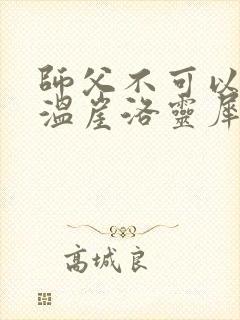 師父不可以
溫崖洛靈犀
高城良